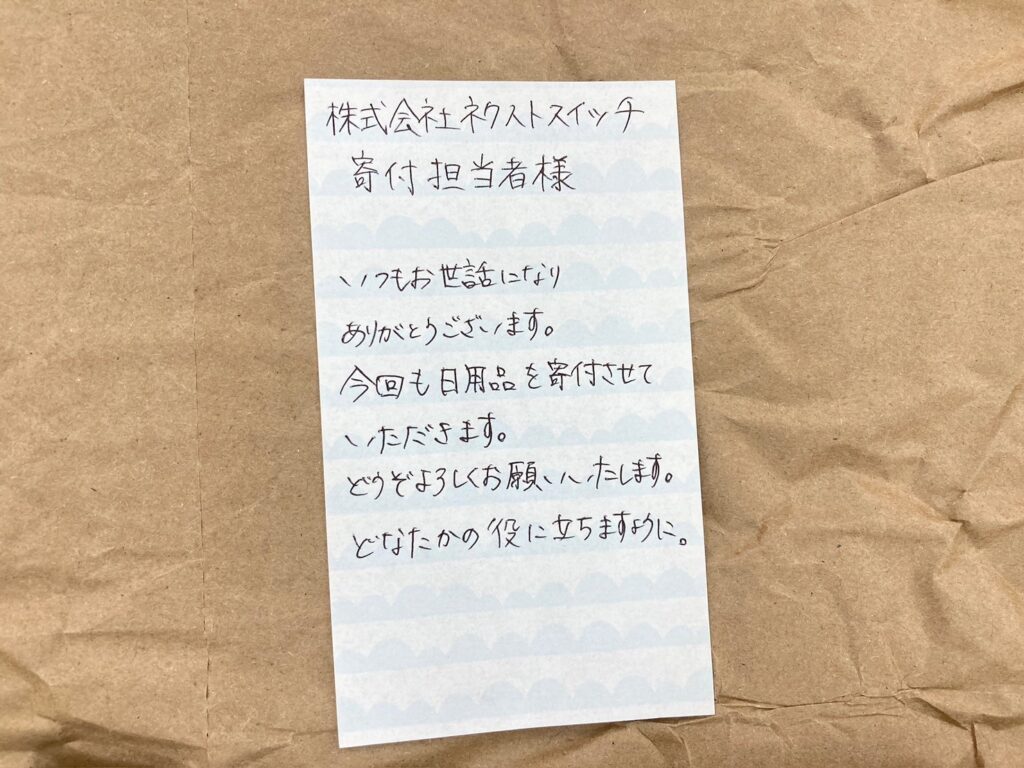 株式会社ネクストスイッチ
寄付担当者様
いつもお世話になり
ありがとうございます。
今回も日用品を寄付させて
いただきます。
どうぞよろしくお願いいたします。
どなたかの役に立ちますように。